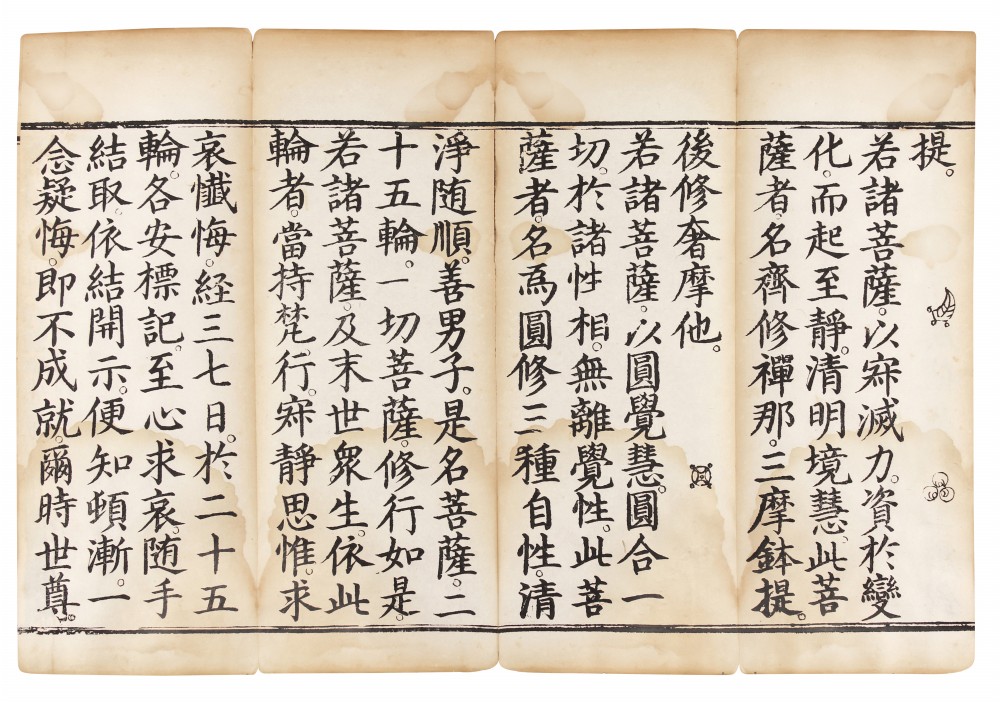 提。
若諸菩薩。以寂滅力。資於變
化。而起至靜。清明境慧。此菩
薩者。名齊修禪那。三摩鉢提。
後修奢摩他。
若諸菩薩。以圓覺慧。圓合一
切。於諸性相。無離覺性。此菩
薩者。名為圓修三種自性。清
淨随順。善男子。是名菩薩。二
十五輪。一切菩薩。修行如是。
若諸菩薩。及末世衆生。依此
輪者。當持梵行。寂靜思惟。求
哀懺悔。経三七日。於二十五
輪。各安標記。至心求哀。随手
結取。依結開示。便知頓漸。一
念疑悔。即不成就。爾時世尊。